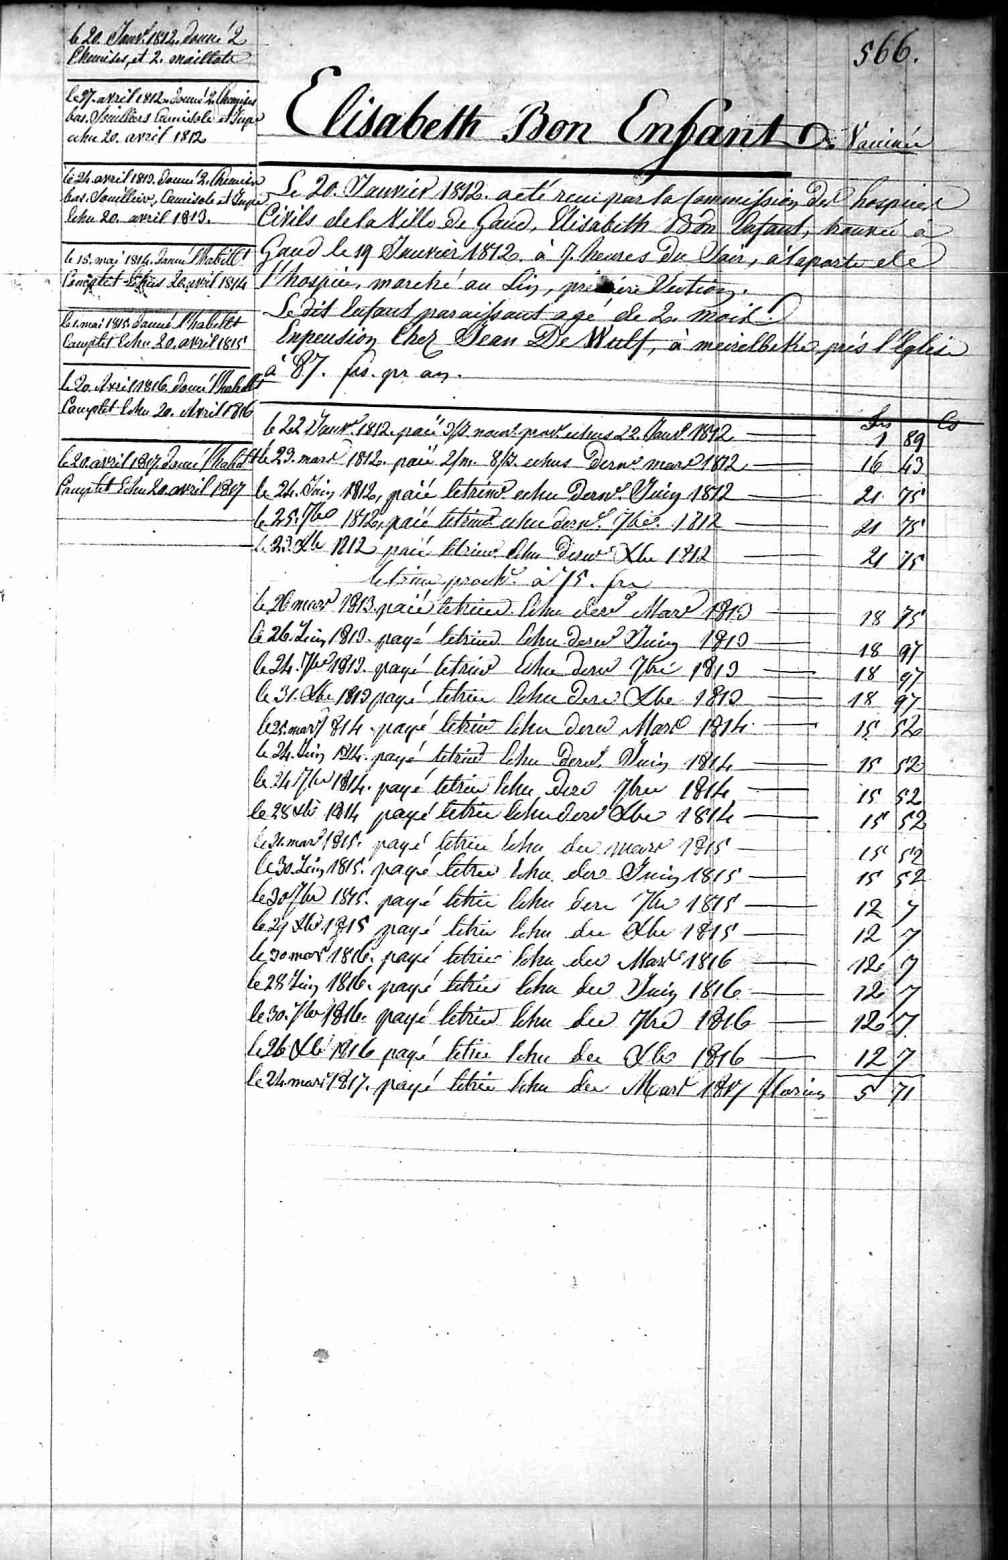 566.
le 20. Janvr. 1812. donné 2
Chemises, et 2. maillots
le 27. avril 1812. donné 2 Chemises
bas, Souilliers Camisole et Jupe
echu 20. avril 1812
le 24. avril 1813. donné 2. Chemises
bas, Souilliers, Camisole et Jupe
Echu 20. avril 1813.
le 15. mai 1814. donné l'habillt
Complet Echus 20 avril 1814
le 1. mai 1815. donné l'habillt
Complet Echu 20. avril 1815
le 20. Avril 1816. donné l'habillt
Complet Echu 20. Avril 1816
le 20. avril 1817. donné l'habillt
Complet Echu 20. avril 1817
Elisabeth Bon Enfant Vaccinée
Le 20. Janvier 1812. a été reçu par la Commission des hospices
Civils de la Ville de Gand, Elisabeth Bon Enfant, trouvée à
Gand le 19 Janvier 1812. à 7. heures du Soir, à la porte de
l'hospice, marché au Lin, première Section.
Le dit Enfant paraissant agé de 2. mois.
En pension Chez Jean De Wulf, à meirelbeke près l'Eglise
à 87. frs. pr an.
frs Cs
le 22 Janvr. 1812. paié echus 22. Janvr. 1812 1 89
le 23. mars 1812. paié 2/m. 8/j. echus dernr mars 1812 16 43
le 24. Juin 1812, paié le trime echu dernr. Juin 1812 21 75
le 25. 7bre 1812, paié le trime echu dernr. 7bre. 1812 21 75
le 23. Xbre 1812 paié le trime Echu dernr Xbre 1812 21 75
le trime prochn. à 75. frs
le 26 mars 1813. paié le trime Echu dernr Mars 1813 18 75
le 26. Juin 1813. payé le trime Echu dernr Juin 1813 18 97
le 24. 7bre 1813. payé le trime Echu dernr 7bre 1813 18 97
le 31. Xbre 1813 payé le trime Echu dernr Xbre 1813 18 97
le 25. mars 1814. payé le trime Echu dernr Mars 1814 15 52
le 24. Juin 1814. payé le trime Echu dernr. Juin 1814 15 52
le 24 7bre 1814. payé le trime Echu dernr 7bre 1814 15 52
le 28 Xbre 1814 payé le trime Echu dernr Xbre 1814 15 52
le 31. mars 1815. payé le trime Echu der mars 1815 15 52
le 30. Juin 1815. payé le trime Echu der Juin 1815 15 52
le 30 7bre 1815. payé le trime Echu der 7bre 1815 12 7
le 29 Xbre 1815 payé le trime Echu der Xbre 1815 12 7
le 30 mars 1816. payé le trime Echu der Mars 1816 12 7
le 28 Juin 1816. payé le trime Echu der Juin 1816 12 7
le 30. 7bre 1816. payé le trime Echu der 7bre 1816 12 7
le 26 Xbre 1816 payé le trime Echu der Xbre 1816 12 7
le 24 mars 1817. payé le trime Echu der Mars 1817 florins 5 71